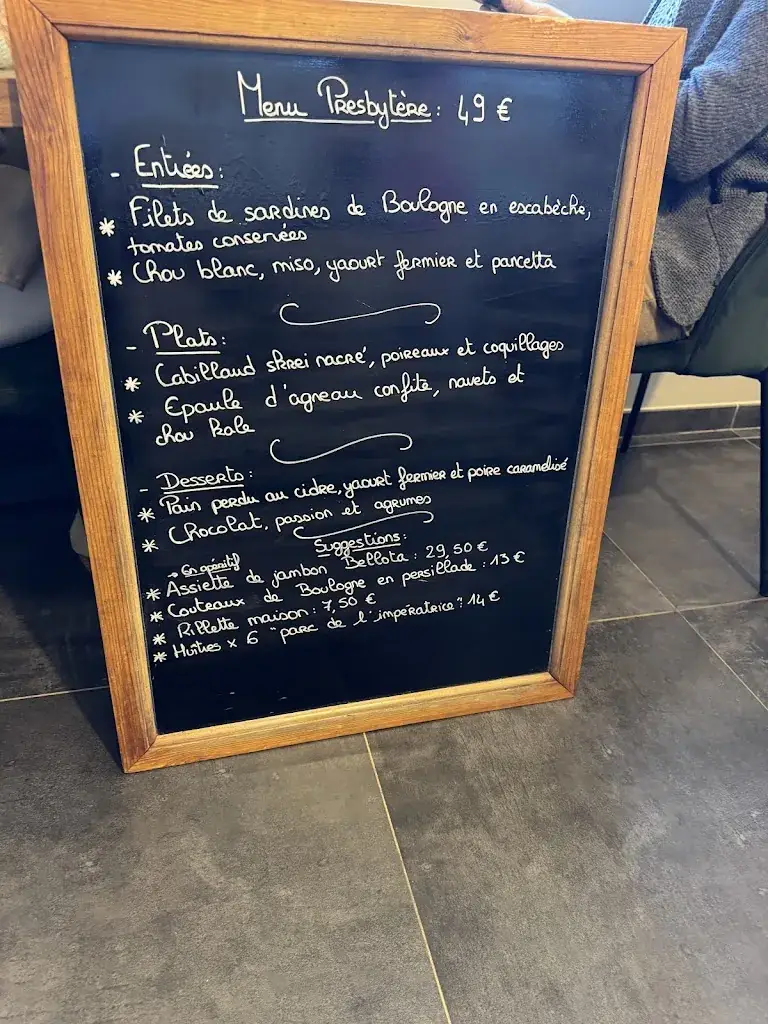 Menu Presbytère : 49 €
- Entrées :
* Filets de sardines de Boulogne en escabèche,
tomates conservées
* Chou blanc, miso, yaourt fermier et pancetta
- Plats :
* Cabillaud skrei nacré, poireaux et coquillages
* Epaule d'agneau confite, navets et
chou kale
- Desserts :
* Pain perdu au cidre, yaourt fermier et poire caramélisé
* Chocolat, passion et agrumes
Suggestions :
→ En apéritif
* Assiette de jambon Bellota : 29,50 €
* Couteaux de Boulogne en persillade : 13 €
* Rillette maison : 7,50 €
* Huîtres x 6 "parc de l'impératrice" : 14 €